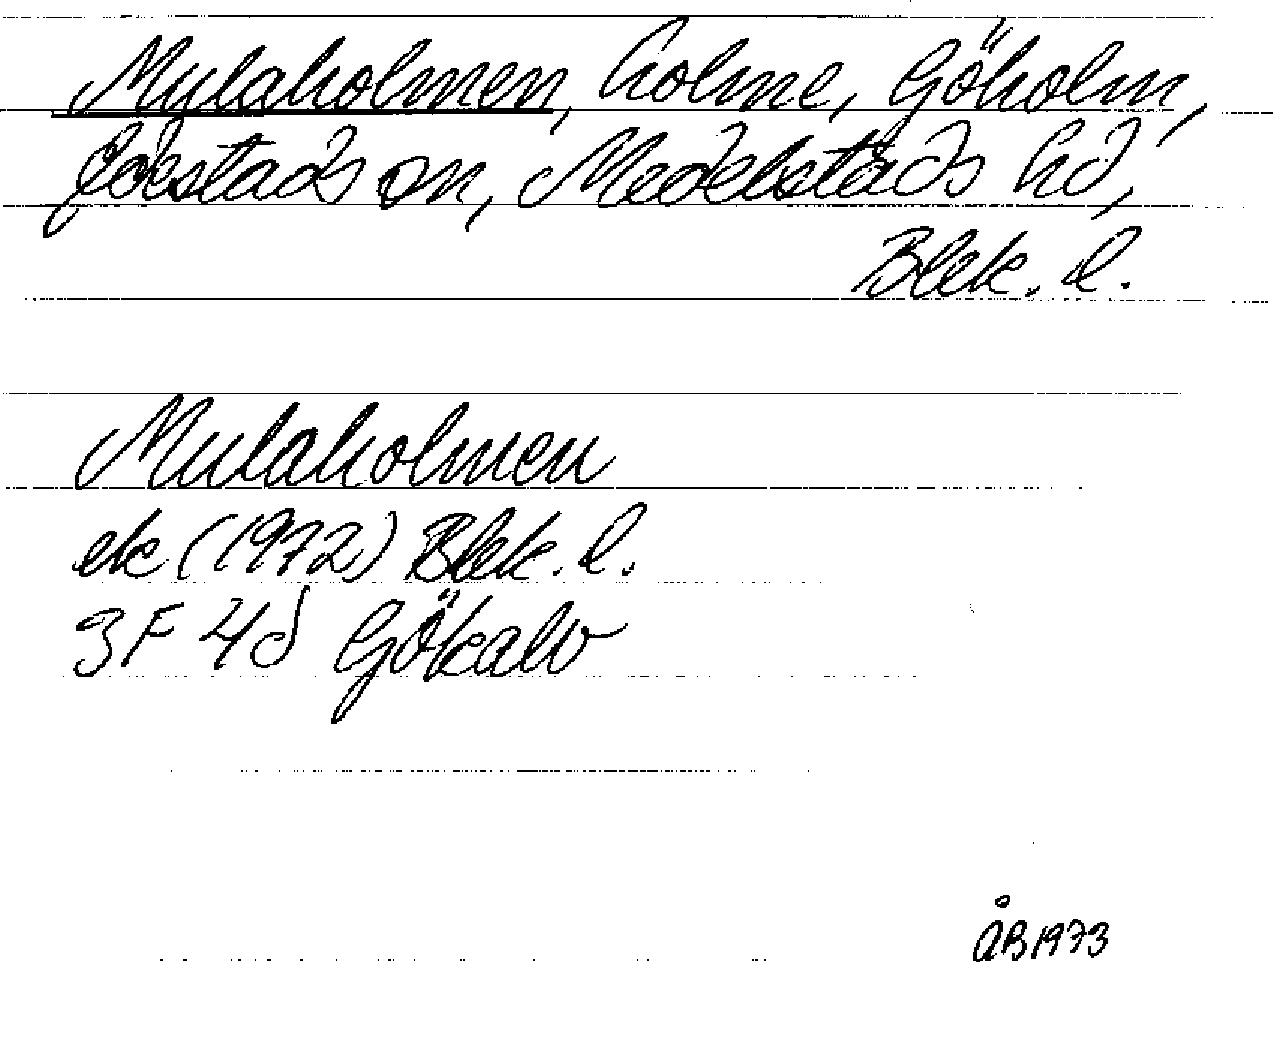 Mulaholmen, holme, Göholm,
Edestads sn, Medelstads hd,
Blek. l.
Mulaholmen
ek (1972) Blek. l.
3F 4d Gökalv
ÅB 1973